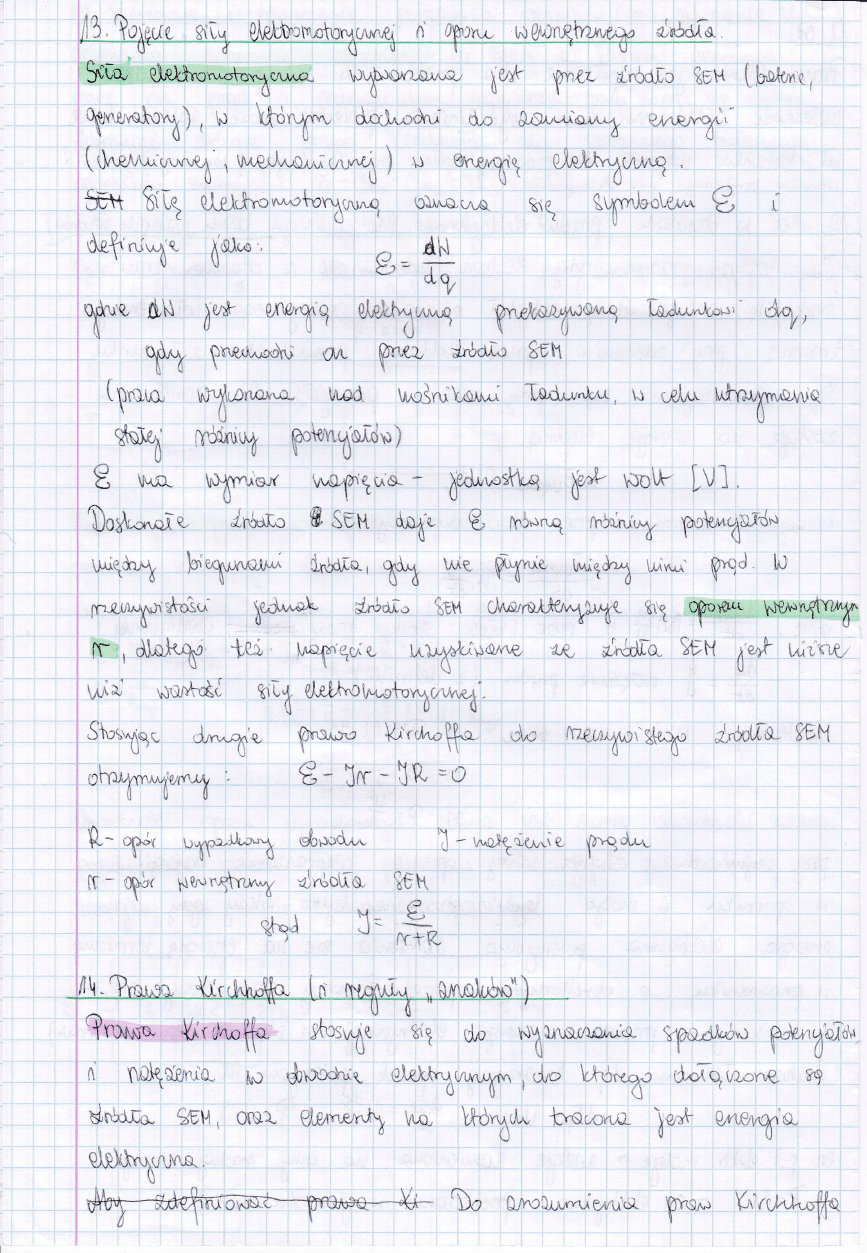 13. Pojęcie siły elektromotorycznej i oporu wewnętrznego źródła.
Siła elektromotoryczna wytwarzana jest przez źródło SEM (baterie,
generatory), w którym dochodzi do zamiany energii
(chemicznej, mechanicznej) w energię elektryczną.
SEM Siłę elektromotoryczną oznacza się symbolem ℰ i
definiuje jako:
ℰ = dW/dq
gdzie dW jest energią elektryczną przekazywaną ładunkowi dq,
gdy przechodzi on przez źródło SEM
(praca wykonana nad nośnikami ładunku, w celu utrzymania
stałej różnicy potencjałów)
ℰ ma wymiar napięcia - jednostką jest wolt [V].
Doskonałe źródło SEM daje ℰ równą różnicy potencjałów
między biegunami źródła, gdy nie płynie między nimi prąd. W
rzeczywistości jednak źródło SEM charakteryzuje się oporem wewnętrznym
r, dlatego też napięcie uzyskiwane ze źródła SEM jest niższe
niż wartość siły elektromotorycznej.
Stosując drugie prawo Kirchoffa do rzeczywistego źródła SEM
otrzymujemy: ℰ - Ir - IR = 0
R - opór wypadkowy obwodu I - natężenie prądu
r - opór wewnętrzny źródła SEM
stąd I = ℰ/(r+R)
14. Prawa Kirchhoffa (i reguły „znaków")
Prawa Kirchoffa stosuje się do wyznaczania spadków potencjałów
i natężenia w obwodzie elektrycznym, do którego dołączone są
źródła SEM, oraz elementy na których tracona jest energia
elektryczna.
Aby zdefiniować prawa Ki Do zrozumienia praw Kirchhoffa